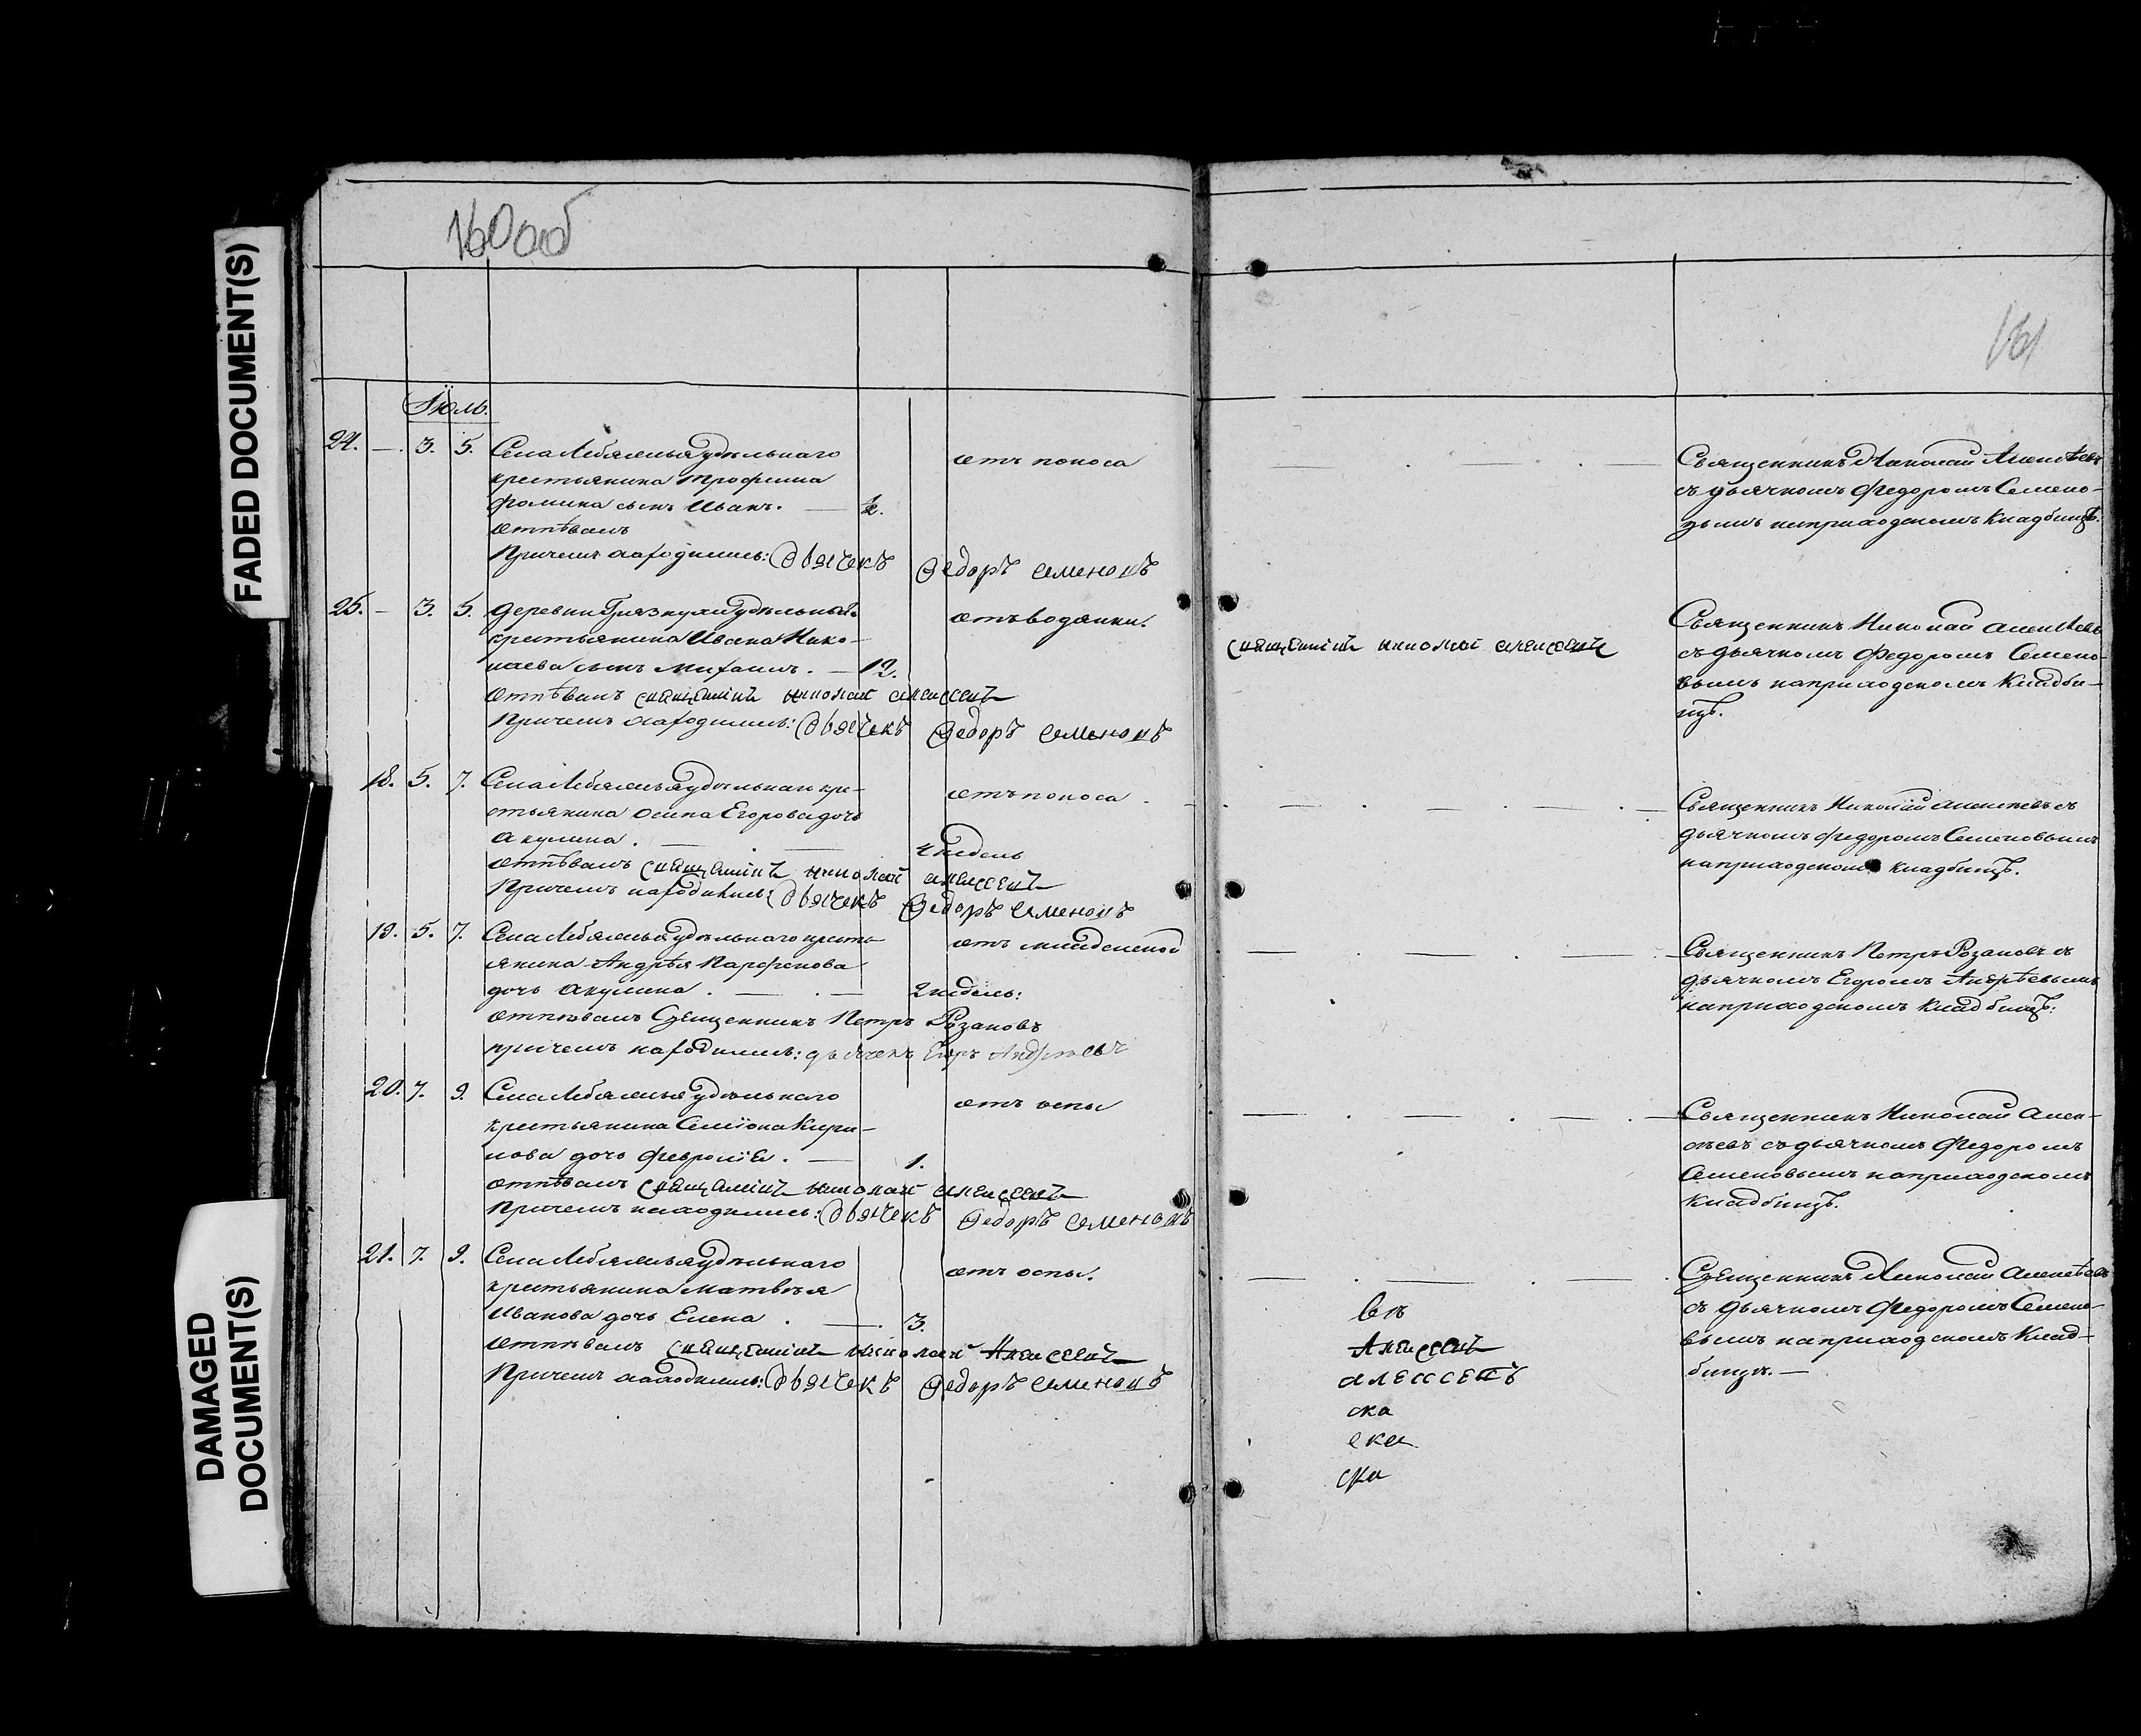 FADED DOCUMENT(S)
DAMAGED
DOCUMENT(S)
160 об
161
Іюль.
24. — 3. 5. Села Лебяжья удѣльнаго
крестьянина Трофима
Фомина сынъ Иванъ. — ½.
отъ поноса
Отпѣвалъ
Причемъ находились: Дьячекъ Федоръ Семеновъ
Священникъ Николай Алексѣевъ
съ дьячкомъ Федоромъ Семено-
вымъ наприходскомъ кладбищѣ.
25. — 3. 5. деревни Грязнухи удѣльнаго
крестьянина Ивана Нико-
лаева сынъ Михаилъ. — 12.
отъ водянки.
Отпѣвалъ священникъ николай алексеевъ
Причемъ находились: Дьячекъ Федоръ Семеновъ
священникъ николай алексеевъ
Священникъ Николай Алексѣевъ
съ дьячкомъ Федоромъ Семено-
вымъ наприходскомъ кладби-
щѣ.
18. 5. 7. Села Лебяжья удѣльнаго кре-
стьянина Осипа Егорова дочь
Акулина. — 4 недель
отъ поноса
Отпѣвалъ священникъ николай алексеевъ
Причемъ находились: Дьячекъ Федоръ Семеновъ
Священникъ Николай Алексѣевъ съ
дьячкомъ Федоромъ Семеновымъ
наприходскомъ кладбищѣ.
19. 5. 7. Села Лебяжья удѣльнаго кресть-
янина Андрѣя Парфенова
дочь Акулина. — 2 недель:
отъ младенской
Отпѣвалъ Священникъ Петръ Розановъ
причемъ находились: дьячекъ Егоръ Андрѣевъ
Священникъ Петръ Розановъ съ
дьячкомъ Егоромъ Андрѣевымъ
наприходскомъ кладбищѣ:
20. 7. 9. Села Лебяжья удѣльнаго
крестьянина Семіона Кири-
лова дочь Февронія. — 1.
отъ оспы
Отпѣвалъ священникъ николай алексеевъ
Причемъ находились: Дьячекъ Федоръ Семеновъ
Священникъ Николай Алек-
сѣевъ съ дьячкомъ Федоромъ
Семеновымъ наприходскомъ
кладбищѣ.
21. 7. 9. Села Лебяжья удѣльнаго
крестьянина Матвѣя
Иванова дочь Елена. — 3.
отъ оспы.
Отпѣвалъ священникъ николай Алексеевъ
Причемъ находились: Дьячекъ Федоръ Семеновъ
Алексеевъ
ска
ека
Священникъ Николай Алексѣевъ
съ дьячкомъ Федоромъ Семено-
вымъ наприходскомъ клад-
бищѣ. —